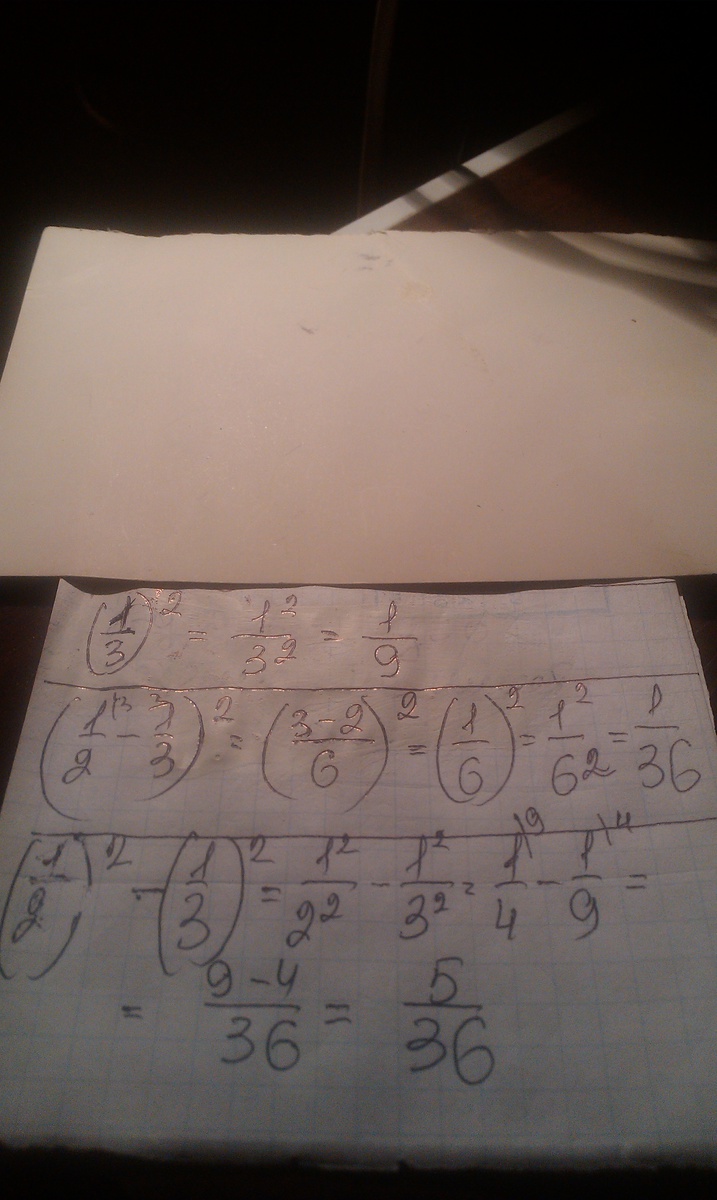 (1/3)² = 1²/3² = 1/9
(1\3/2 - 1/3)² = ((3-2)/6)² = (1/6)² = 1²/6² = 1/36
(1/2)² - (1/3)² = 1²/2² - 1²/3² = 1\9/4 - 1\4/9 =
= (9-4)/36 = 5/36